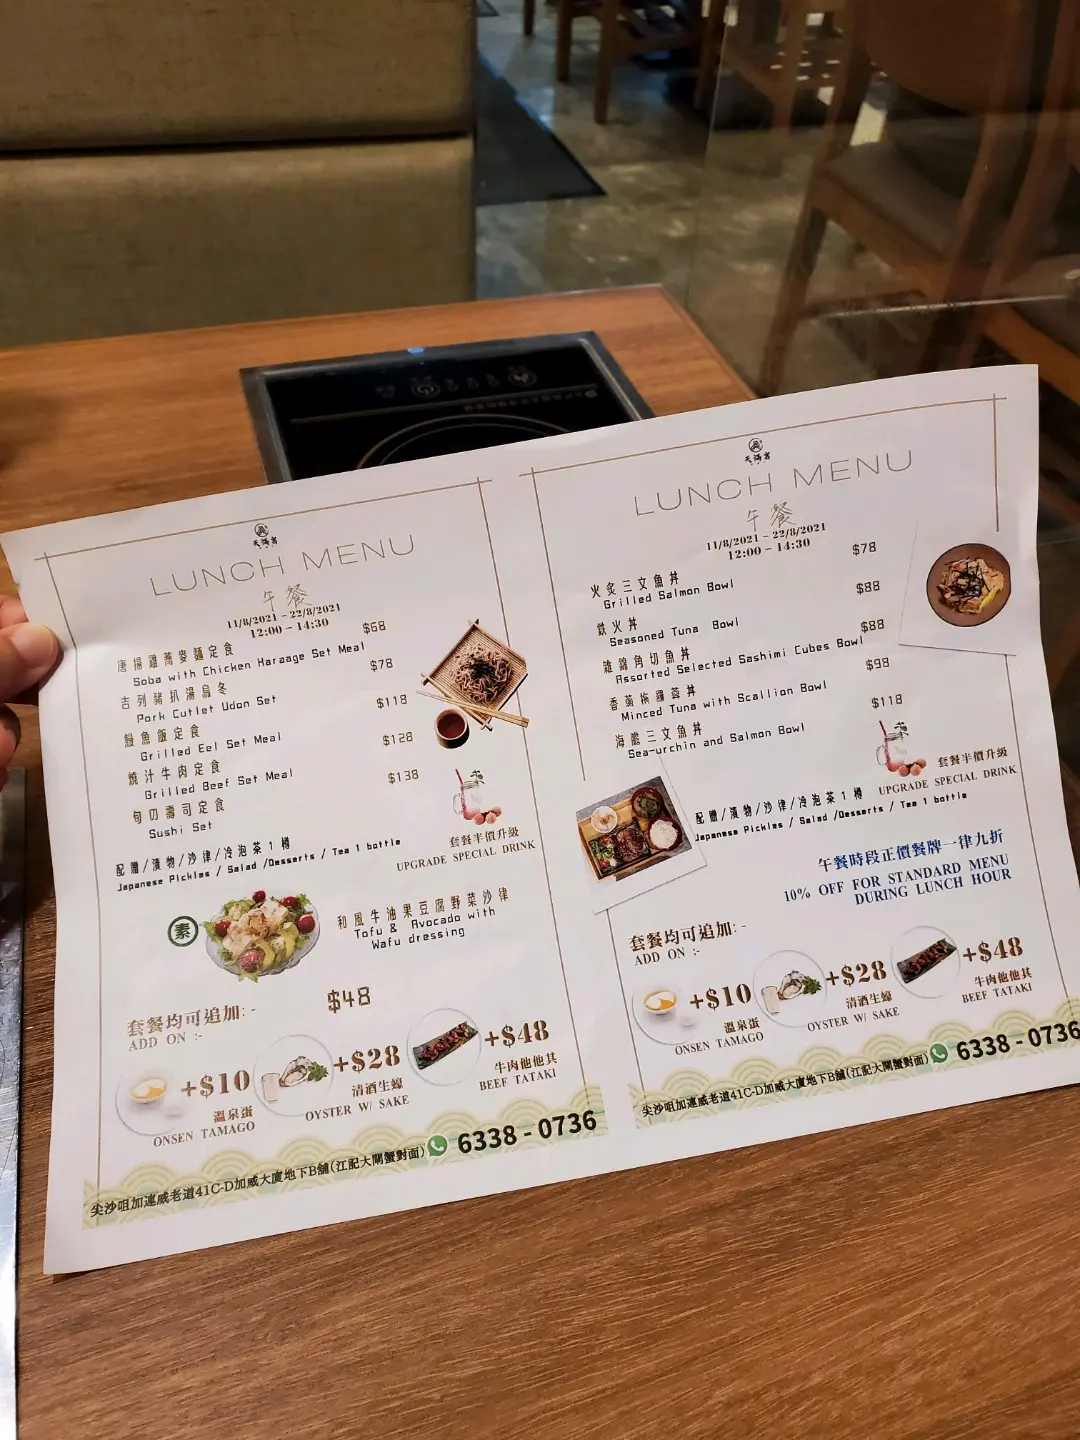 天滿宮
LUNCH MENU
午餐
11/8/2021 - 22/8/2021
12:00 - 14:30
唐揚雞蕎麥麵定食
$68
Soba with Chicken Karaage Set Meal
吉列豬扒湯烏冬
$78
Pork Cutlet Udon Set
鰻魚飯定食
$118
Grilled Eel Set Meal
燒汁牛肉定食
$128
Grilled Beef Set Meal
旬の壽司定食
$138
Sushi Set
配贈/漬物/沙律/冷泡茶1樽
Japanese Pickles / Salad /Desserts / Tea 1 bottle
套餐半價升級
UPGRADE SPECIAL DRINK
素
和風牛油果豆腐野菜沙律
Tofu & Avocado with
Wafu dressing
$48
套餐均可追加:-
ADD ON :-
+$10
溫泉蛋
ONSEN TAMAGO
+$28
清酒生蠔
OYSTER W/ SAKE
+$48
牛肉他他其
BEEF TATAKI
尖沙咀加連威老道41C-D加威大廈地下B舖(江記大閘蟹對面) 6338 - 0736
天滿宮
LUNCH MENU
午餐
11/8/2021 - 22/8/2021
12:00 - 14:30
火炙三文魚丼
$78
Grilled Salmon Bowl
鉄火丼
$88
Seasoned Tuna Bowl
雜錦角切魚丼
$88
Assorted Selected Sashimi Cubes Bowl
$98
Minced Tuna with Scallion Bowl
海膽三文魚丼
$118
Sea-urchin and Salmon Bowl
套餐半價升級
UPGRADE SPECIAL DRINK
配贈/漬物/沙律/冷泡茶1樽
Japanese Pickles / Salad /Desserts / Tea 1 bottle
午餐時段正價餐牌一律九折
10% OFF FOR STANDARD MENU
DURING LUNCH HOUR
套餐均可追加:-
ADD ON :-
+$10
溫泉蛋
ONSEN TAMAGO
+$28
清酒生蠔
OYSTER W/ SAKE
+$48
牛肉他他其
BEEF TATAKI
尖沙咀加連威老道41C-D加威大廈地下B舖(江記大閘蟹對面) 6338 - 0736